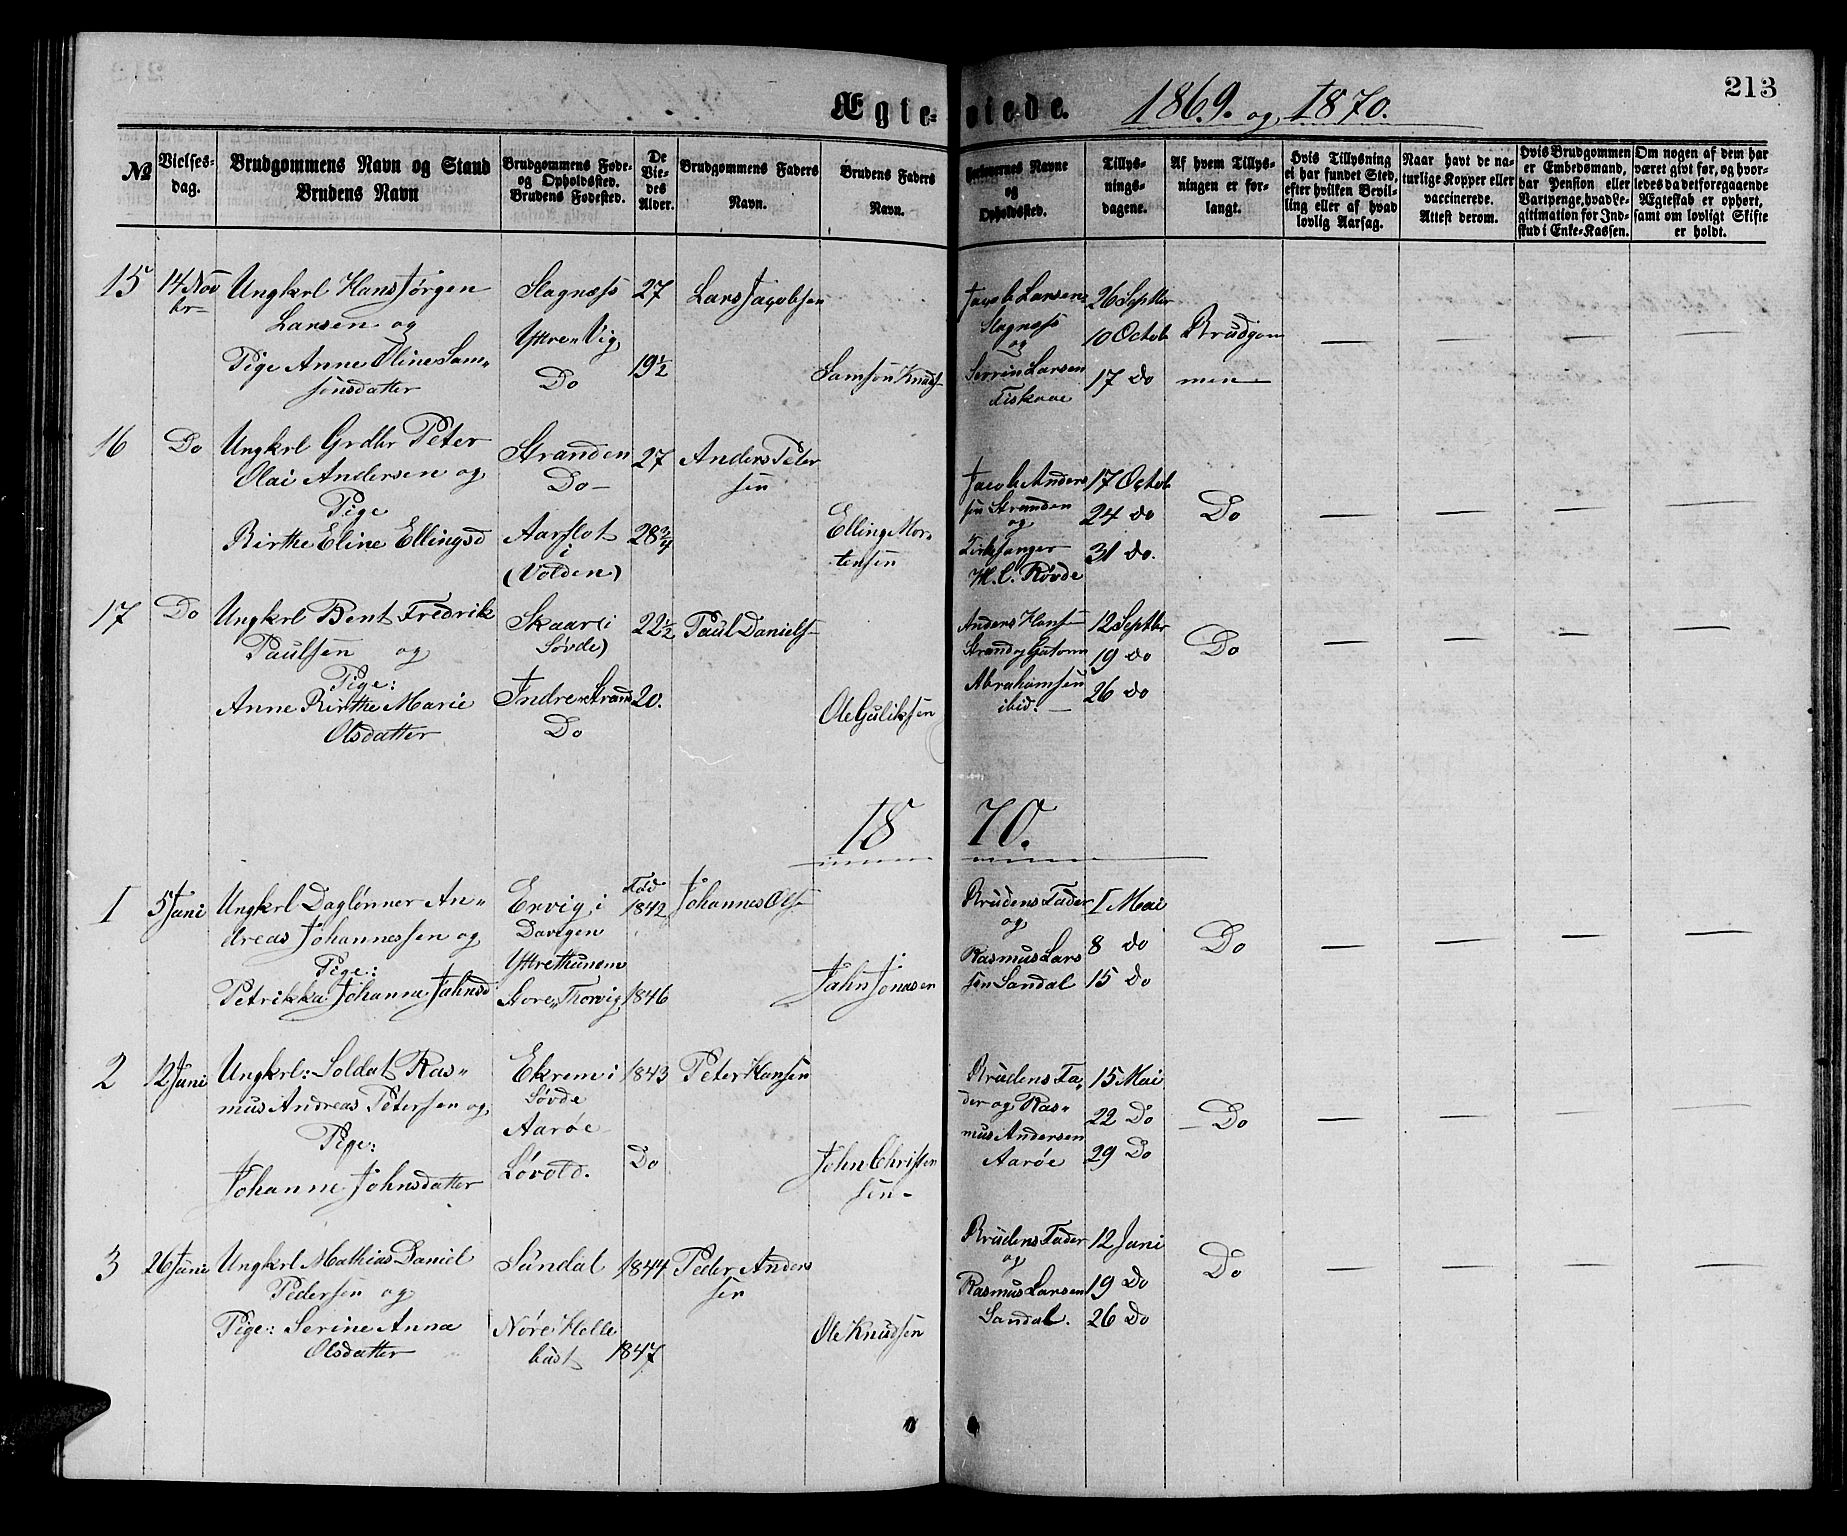 213
Ægte- viede. 1869. og 1870.
№
Vielses-
dag.
Brudgommens Navn og Stand
Brudens Navn
Brudgommens Føde-
og Opholdssted.
Brudens Fødested.
De
Vie-
des
Alder.
Brudgommens Faders
Navn.
Brudens Faders
Navn.
Forlovernes Navne
og
Opholdssted.
Tillys-
nings-
dagene.
Af hvem Tillys-
ningen er for-
langt.
Hvis Tillysning
ei har fundet Sted,
efter hvilken Bevil-
ling eller af hvad
lovlig Aarsag.
Naar havt de na-
turlige Kopper eller
vaccinerede.
Attest derom.
Hvis Brudgommen
er Embedsmand,
har Pension eller
Vartpenge, hvad Le-
gitimation for Ind-
skud i Enke-Kassen.
Om nogen af dem har
været givt før, og hvor-
ledes da det foregaaende
Ægteskab er ophørt,
samt om lovligt Skifte
er holdt.
15 14 Nov
br
Ungkrl Hans Jørgen
Larsen og
Pige Anne Oline Sam„
sensdatter
Slagnæss
Yttre„Vig
Do
27
19½
Lars Jacobsen
Samson Knuds
Jacob Larsen
Slagnæss
og
Serrin Larsen
Fiskaae
26 Septbr
10 Octob
17 do
Brudgom
men
— — — —
16 Do
Ungkrl Grdbr Peter
Olai Andersen og
Pige
Birthe Eline Ellingsd
Stranden
Do
Aarflot
i
(Volden)
27
28¾
Anders Peter
sen
Elling Mor„
tensen
Jacob Anders
sen Stranden
og
Kirkesanger
M. C. Røvde
17 Octob
24 do
31 do.
Do
— — — —
17 Do
Ungkrl Bent Fredrik
Paulsen og
Pige:
Anne Birthe Marie
Olsdatter
Skaare i
Søvde)
Indre„Strand
Do
22½
20.
Paul Daniels
Ole Guliksen
Anders Hans
Strand og Gutorm
Abrahamsen
ibid.
12 Septbr
19 do
26 do
Do
— — — —
18 70.
1 5 Juni
Ungkrl Daglønner An„
dreas Johannessen og
Pige:
Petrikka Johanne Jahnsd
Ervig i
Davigen
Yttrethunem
Store„Thorvig
Fød
1842
1846
Johannes Ols
Jahn Jonasen
Brudens Fader
og
Rasmus Lars
sen Sandal
1 Mai
8 do
15 Do
Do
— — — —
2 12 Juni
Ungkrl: Soldat Ras„
mus Andreas Petersen og
Pige:
Johanne Johnsdatter
Ekrem i
Søvde
Aarøe
Løvold.
1843
Do
Peter Hansen
John Christen
sen
Brudens Fa„
der og Ras„
mus Andersen
Aarøe
15 Mai
22 Do
29 Do
Do
— — — —
3 26 Juni
Ungkrl Mathias Daniel
Pedersen og
Pige: Serine Anna
Olsdatter
Sandal
Nøre Helle
bust
1844
1847
Peder Anders
sen
Ole Knudsen
Brudens Fader
og
Rasmus Larsen
Sandal.
12 Juni
19 Do
26 Do
Do
— — — —